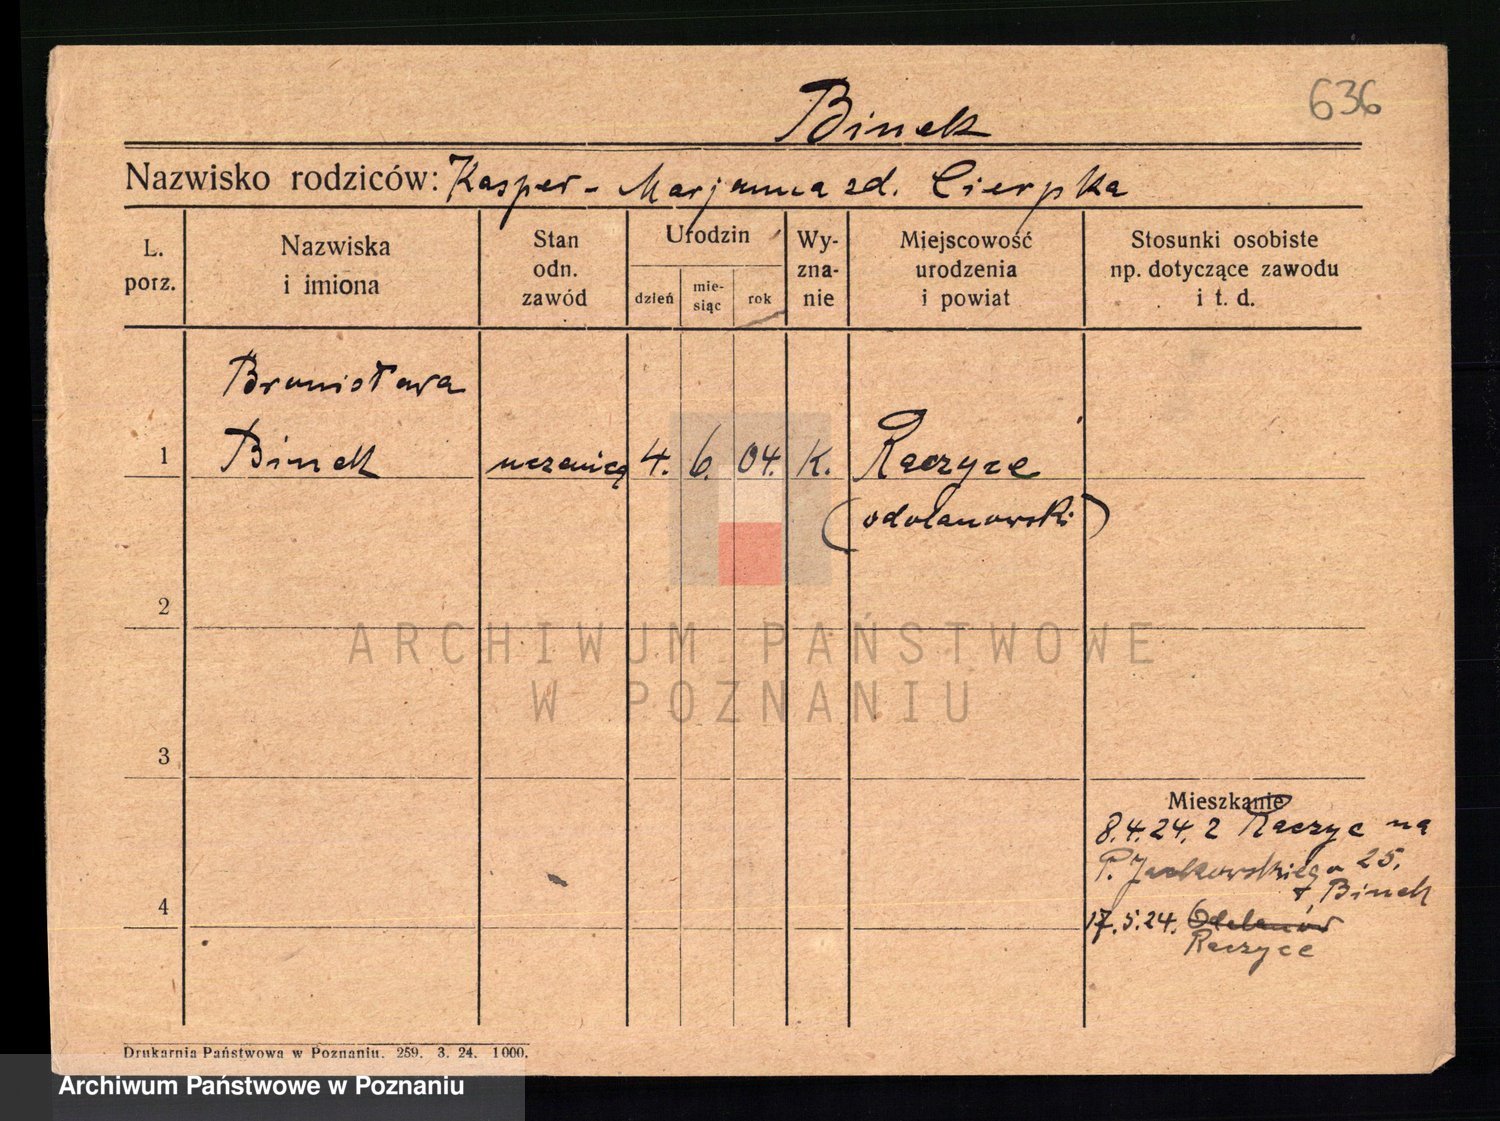 636
Binek
Nazwisko rodziców: Kasper - Marjanna zd. Cierpka
L. porz.
Nazwiska i imiona
Stan odn. zawód
Urodzin
dzień
mie-siąc
rok
Wy-zna-nie
Miejscowość urodzenia i powiat
Stosunki osobiste np. dotyczące zawodu i t. d.
Bronisława
1 Binek uczenica 4. 6. 04. K. Raczyce
(odolanowski)
2
ARCHIWUM PAŃSTWOWE
W POZNANIU
3
Mieszkanie
8.4.24. z Raczyc na
P. Jackowskiego 25.
Binek
4
17.5.24. Odolanów
Raczyce
Drukarnia Państwowa w Poznaniu. 259. 3. 24. 1000.
Archiwum Państwowe w Poznaniu